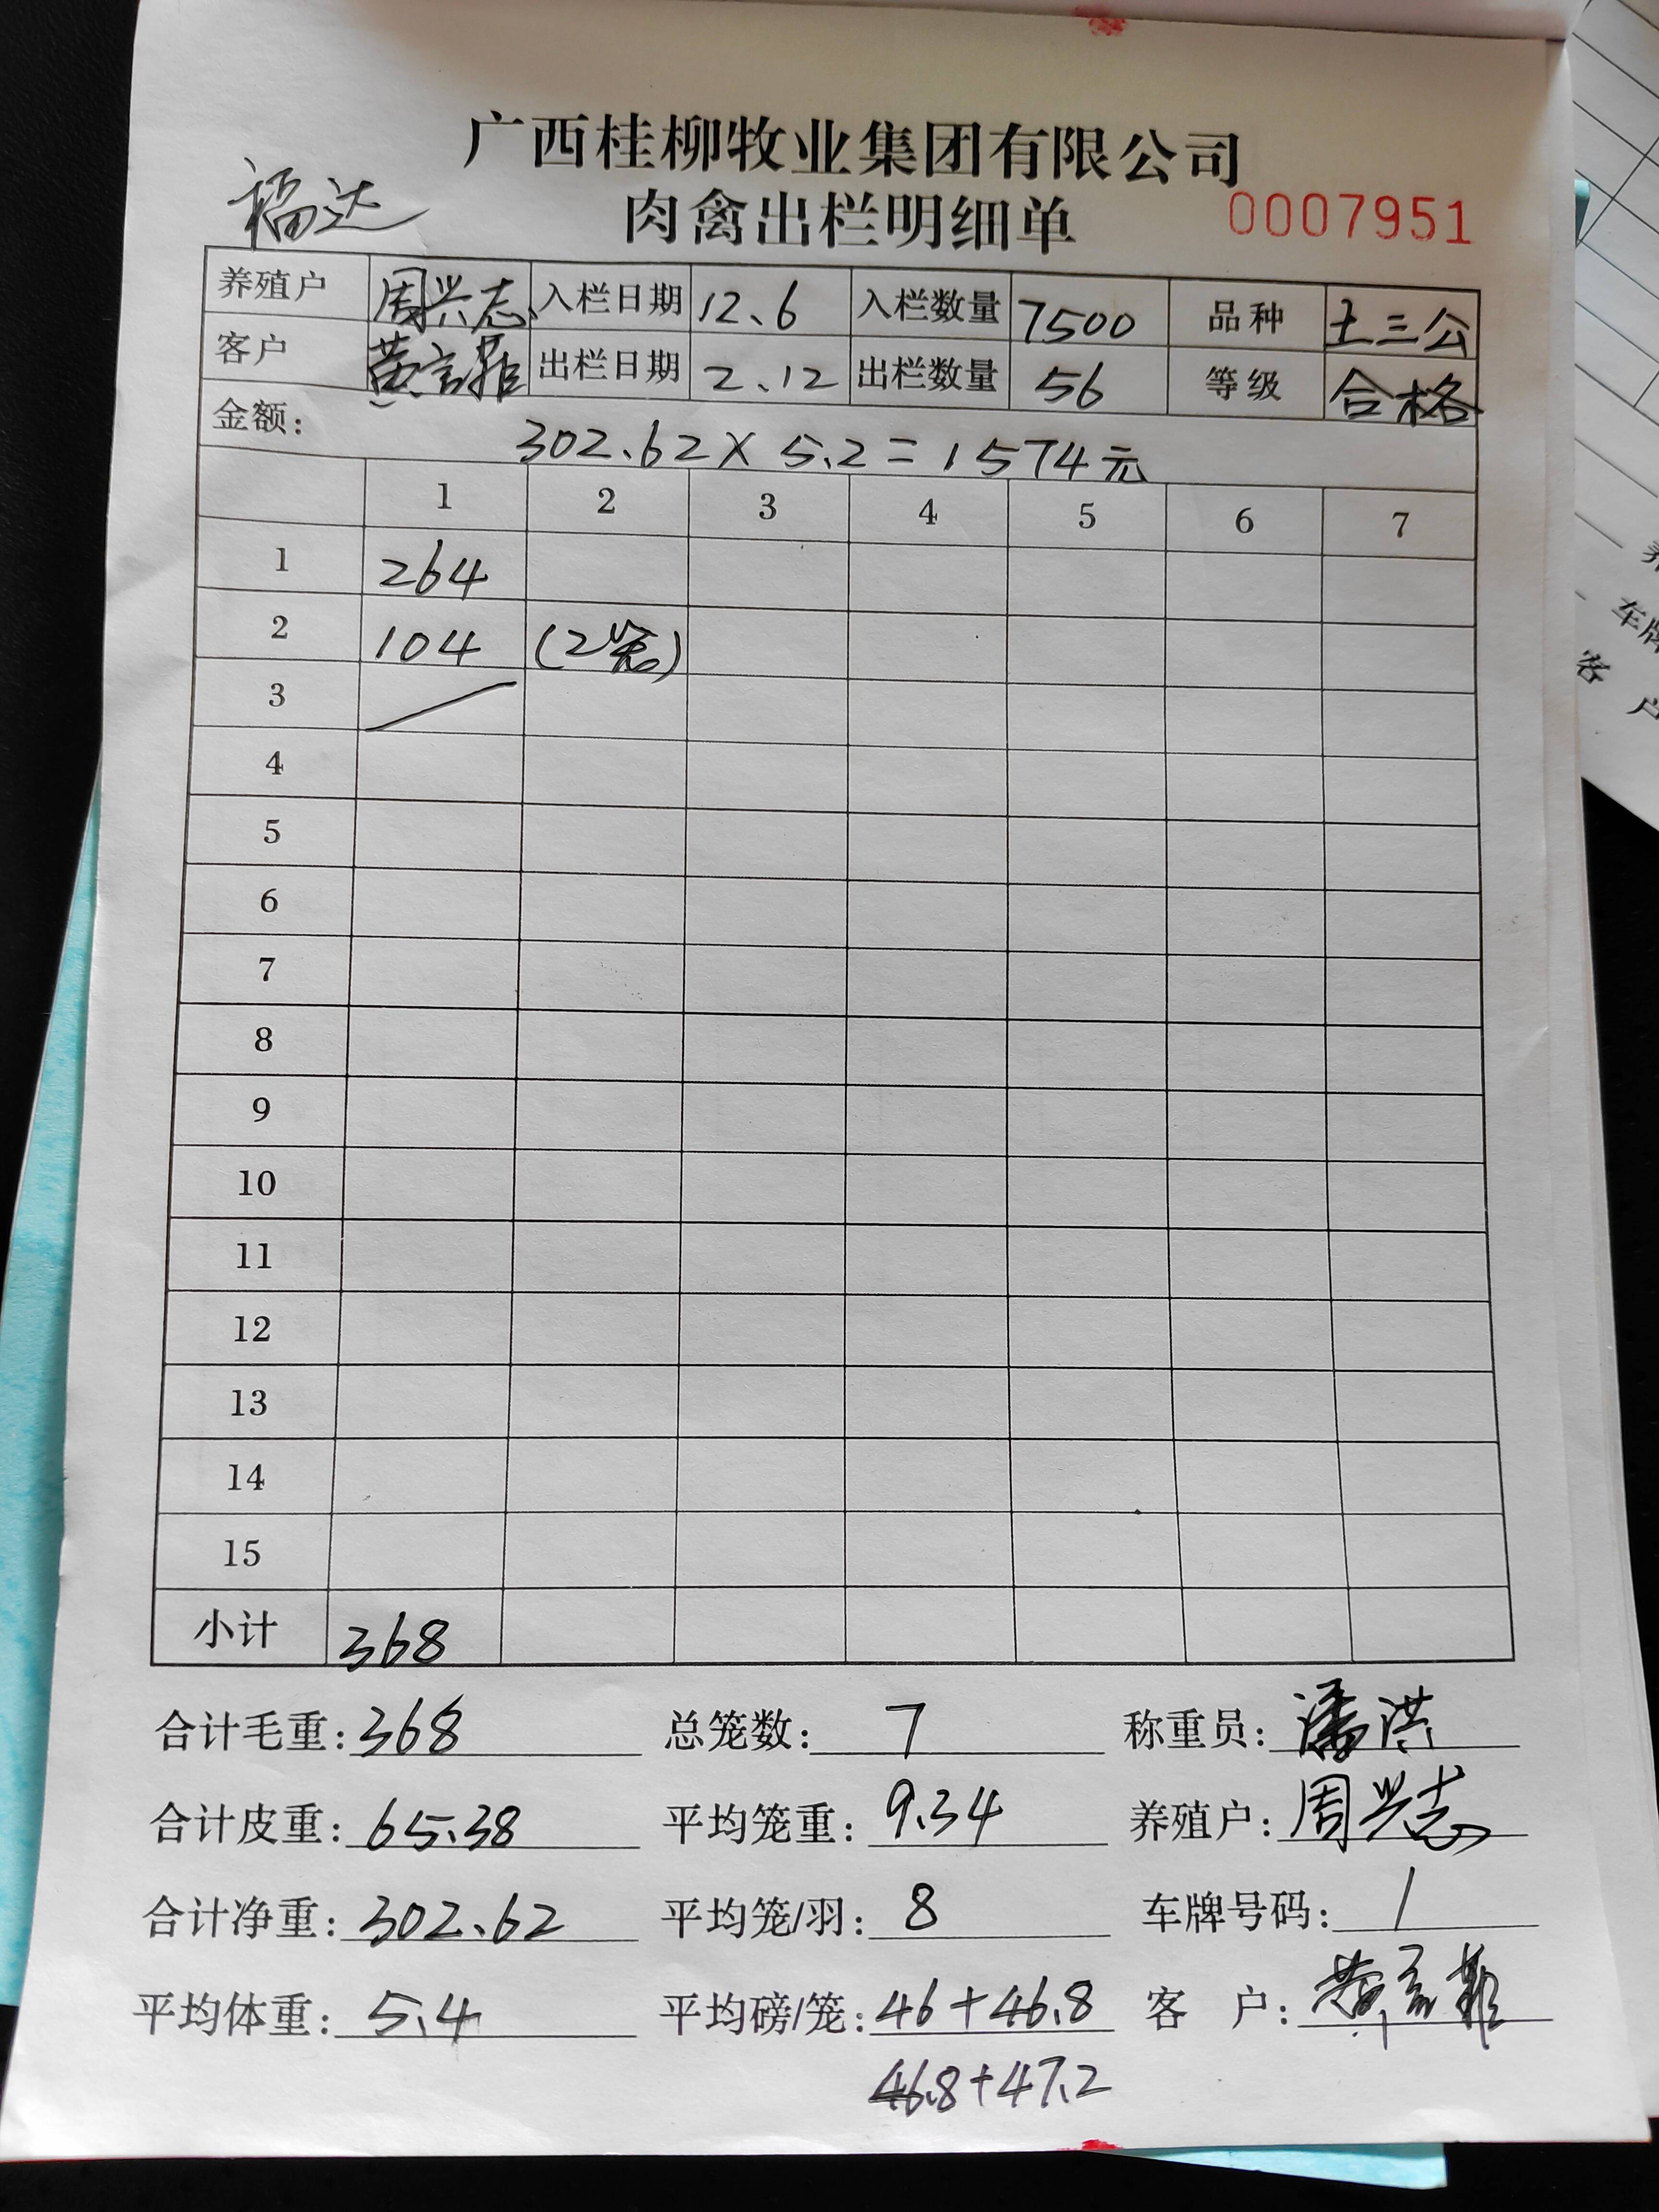 广西桂柳牧业集团有限公司
福达 肉禽出栏明细单 0007951
养殖户 周兴志 入栏日期 12.6 入栏数量 7500 品种 土三公
客户 黄 出栏日期 2.12 出栏数量 56 等级 合格
金额: 302.62×5.2=1574元
1 2 3 4 5 6 7
1 264
2 104 (2笼)
3
4
5
6
7
8
9
10
11
12
13
14
15
小计 368
合计毛重: 368 总笼数: 7 称重员: 潘洪
合计皮重: 65.38 平均笼重: 9.34 养殖户: 周兴志
合计净重: 302.62 平均笼/羽: 8 车牌号码: /
平均体重: 5.4 平均磅/笼: 46+46.8 客户: 黄
46.8+47.2
养
车牌
客户